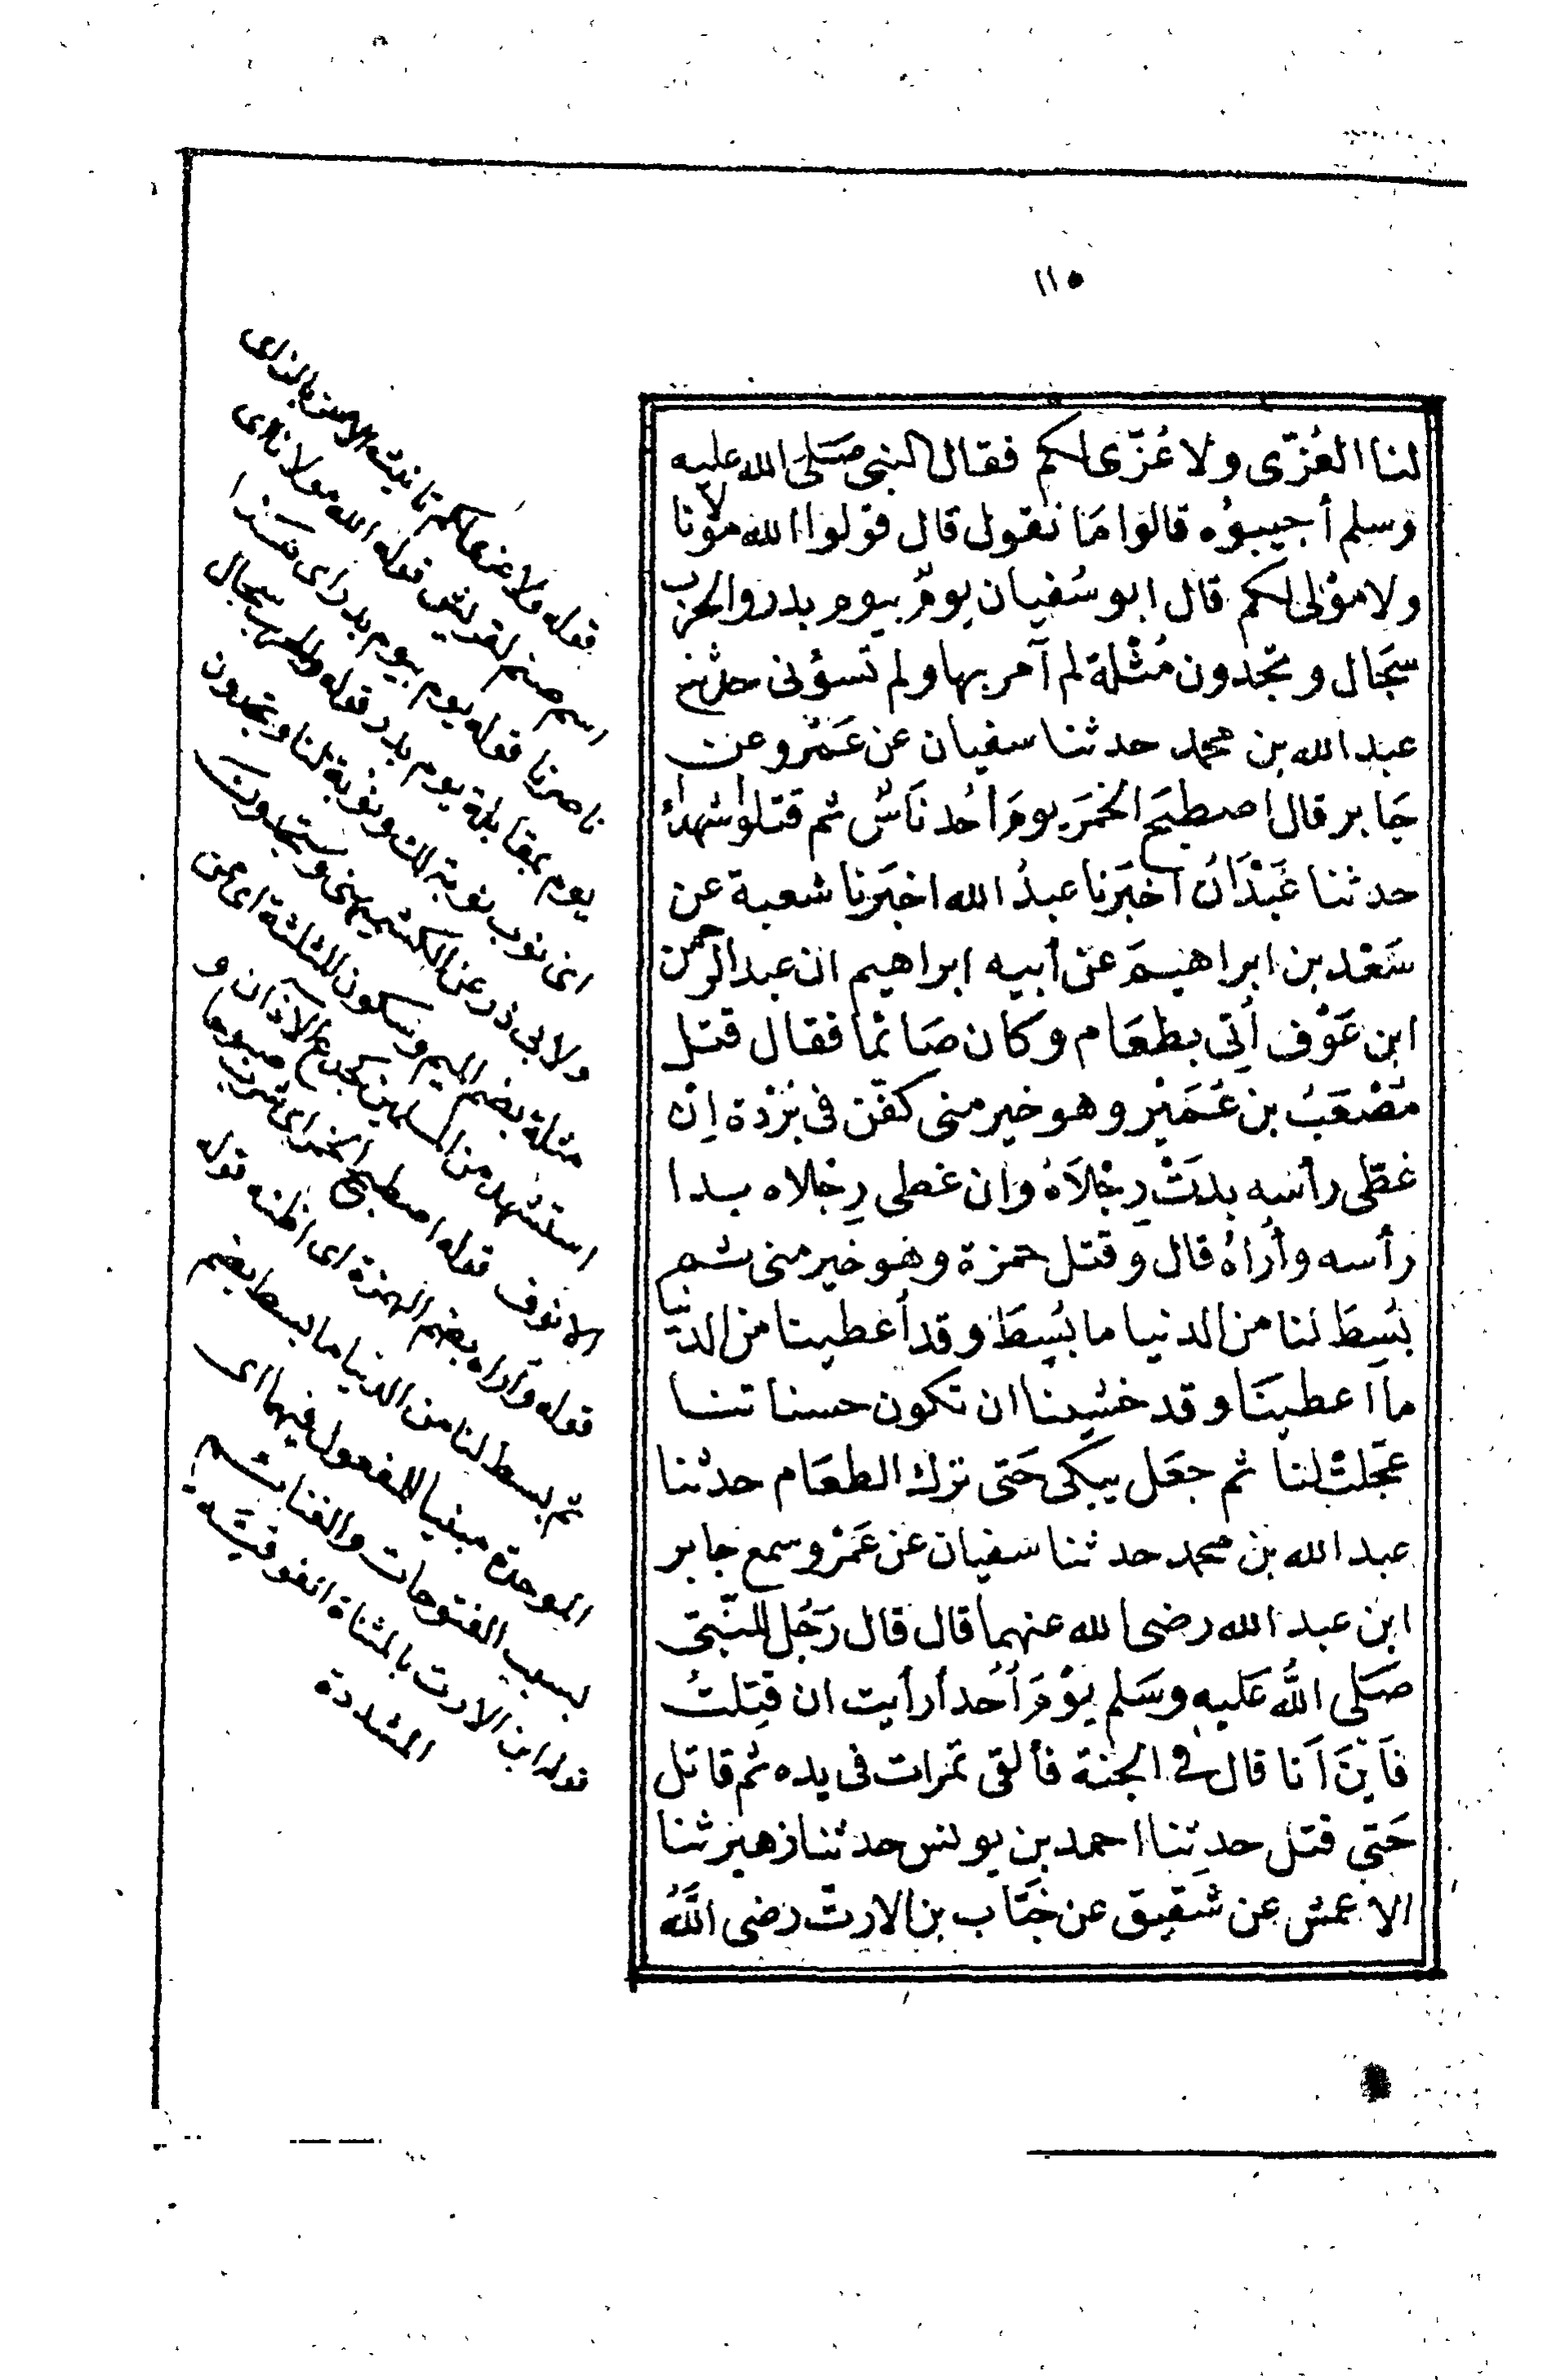 ١١٥
لنا العُزّى ولا عُزّى لكم فقال النبى صَلى الله عليه
وسلم أجيبوُه قالوا مَا نقول قال قولوا الله مولانا
ولا مَوْلى لكم قال ابو سُفيان يومٌ بيوم بدر والحرب
سِجَال وتجدون مُثْلة لم آمر بها ولم تسؤنى حدثنى
عبد الله بن محمد حدثنا سفيان عن عَمْرو عن
جَابر قال اصطبح الخمَر يومَ أحُد نَاسٌ ثم قتلوا شهداءَ
حدثنا عَبْدَانُ اخبَرنا عبدُ الله اخبَرنا شعبة عن
سَعْد بن ابراهيمَ عن أبيه ابراهيم ان عبد الرحمن
ابن عَوْف أُتِى بطعَام وكان صَائمًا فقال قتل
مُصْعَبُ بن عُمَيْر وهو خير منى كفّن فى بُرْدة اِنْ
غطّى رأسه بدَتْ رِجْلَاهُ وان غطى رِجْلاه بدا
رأسه وأُراهُ قال وقتل حمزة وهو خير منى ثم
بُسِطَ لنا من الدنيا ما بُسِطَ وقد أعطينا من الدنيا
ما اعطينَا وقد خشينا ان تكون حسناتنا
عجّلتْ لنا ثم جعَل يبكى حَتى ترك الطعَام حدثنا
عبد الله بن محمد حدثنا سفيان عن عَمْرو سمع جابر
ابن عبد الله رضى الله عنهما قال قال رَجُل للنّبىّ
صَلى اللّٰه عَليه وسَلم يوْمَ أحُد أرأيت ان قتِلتُ
فَاَينَ اَنا قال فى الجنة فألقى تمرات فى يده ثم قاتل
حَتى قتل حدثنا احمد بن يونس حدثنا زهير ثنا
الاعمش عن شقيق عن خَبّاب بن الارتّ رضى اللّٰهُ
قوله ولا عزى لكم تانيث الاعز بالزاى
اسم صنم لقريش قوله الله مولانا اى
ناصرنا قوله يوم بيوم بدر اى هَذا
يوم بمقابلة يوم بدر قوله والحرب سجال
اى نوب نوبة لك ونوبة لنا وتجدون
ولابى ذر عن الكشميهنى وستجدون
مثلة بضم الميم وسكون المثلثة اى ممن
استشهد من المسلمين كجدع الآذان و
الانوف قوله اصطبح الخمر اى شرب صبوحا
قوله وأراه بضم الهمزة اى اظنه قوله
ثم بسط لنا من الدنيا ما بسط بضم
الموحدة مبنيا للمفعول فيهما اى
بسبب الفتوحات والغنائم
قوله ابن الارت بالمثناة الفوقيّة
المشددة